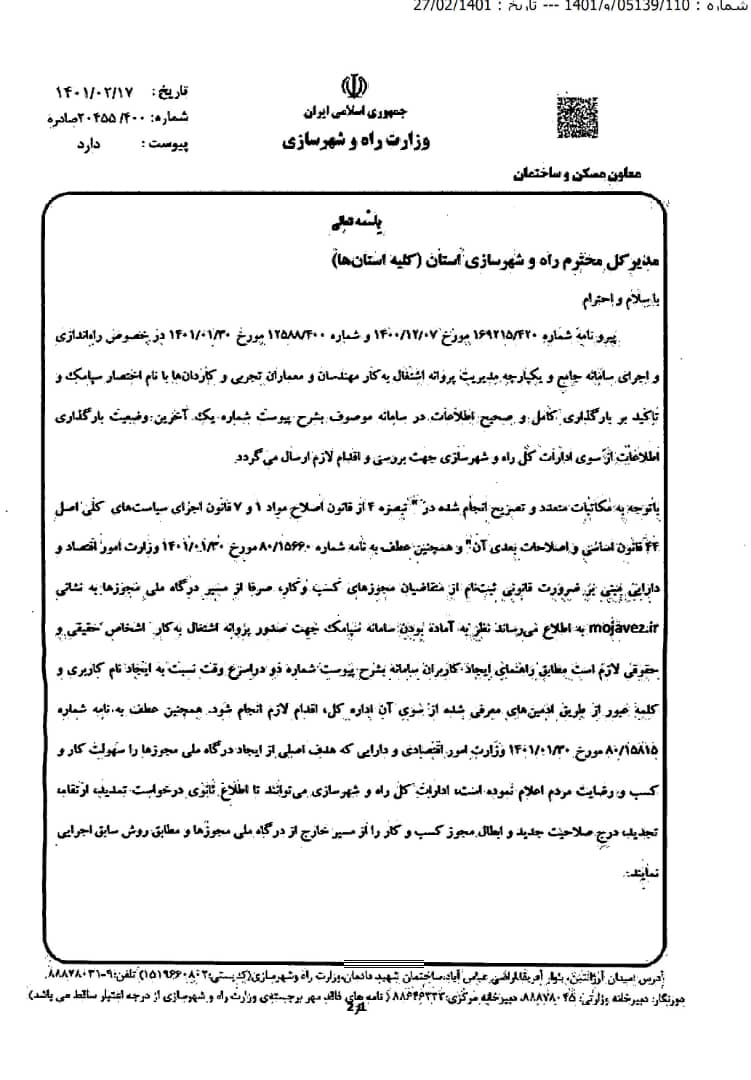 شماره : 110/05139/و/1401 --- تاریخ : 27/02/1401
تاریخ: ۱۴۰۱/۰۲/۱۷
شماره: ۲۰۴۵۵/۴۰۰صادره
پیوست: دارد
جمهوری اسلامی ایران
وزارت راه و شهرسازی
معاون مسکن و ساختمان
باسمه تعالی
مدیرکل محترم راه و شهرسازی استان (کلیه استان‌ها)
با سلام و احترام
پیرو نامه شماره ۱۶۹۲۱۵/۴۲۰ مورخ ۱۴۰۰/۱۲/۰۷ و شماره ۱۲۵۸۸/۴۰۰ مورخ ۱۴۰۱/۰۱/۳۰ در خصوص راه‌اندازی
و اجرای سامانه جامع و یکپارچه مدیریت پروانه اشتغال به‌کار مهندسان و معماران تجربی و کاردان‌ها با نام اختصار سیامک و
تاکید بر بارگذاری کامل و صحیح اطلاعات در سامانه موصوف بشرح پیوست شماره یک آخرین وضعیت بارگذاری
اطلاعات از سوی ادارات کل راه و شهرسازی جهت بررسی و اقدام لازم ارسال می‌گردد.
باتوجه به مکاتبات متعدد و تصریح انجام شده در " تبصره ۴ از قانون اصلاح مواد ۱ و ۷ قانون اجرای سیاست‌های کلی اصل
۴۴ قانون اساسی و اصلاحات بعدی آن" و همچنین عطف به نامه شماره ۸۰/۱۵۶۶۰ مورخ ۱۴۰۱/۰۱/۳۰ وزارت امور اقتصاد و
دارایی مبنی بر ضرورت قانونی ثبت‌نام از متقاضیان مجوزهای کسب و کار، صرفا از مسیر درگاه ملی مجوزها به نشانی
mojavez.ir به اطلاع می‌رساند نظر به آماده بودن سامانه سیامک جهت صدور پروانه اشتغال به‌کار اشخاص حقیقی و
حقوقی لازم است مطابق راهنمای ایجاد کاربران سامانه بشرح پیوست شماره دو دراسرع وقت نسبت به ایجاد نام کاربری و
کلمه عبور از طریق ادمین‌های معرفی شده از سوی آن اداره کل، اقدام لازم انجام شود. همچنین عطف به نامه شماره
۸۰/۱۵۸۱۵ مورخ ۱۴۰۱/۰۱/۳۰ وزارت امور اقتصادی و دارایی که هدف اصلی از ایجاد درگاه ملی مجوزها را سهولت کار و
کسب و رضایت مردم اعلام نموده است، ادارات کل راه و شهرسازی می‌توانند تا اطلاع ثانوی درخواست تمدید، ارتقا،
تجدید، درج صلاحیت جدید و ابطال مجوز کسب و کار را از مسیر خارج از درگاه ملی مجوزها و مطابق روش سابق اجرایی
نمایند.
آدرس :میدان آرژانتین، بلوار آفریقا،اراضی عباس آباد،ساختمان شهید دادمان،وزارت راه وشهرسازی(کدپستی:۱۵۱۹۶۶۰۸۰۲) تلفن:۹-۸۸۸۷۸۰۳۱
دورنگار: دبیرخانه وزارتی: ۸۸۸۷۸۰۴۵، دبیرخانه مرکزی:۸۸۶۴۶۳۳۳ ( نامه های فاقد مهر برجسته‌ی وزارت راه و شهرسازی از درجه اعتبار ساقط می باشد)